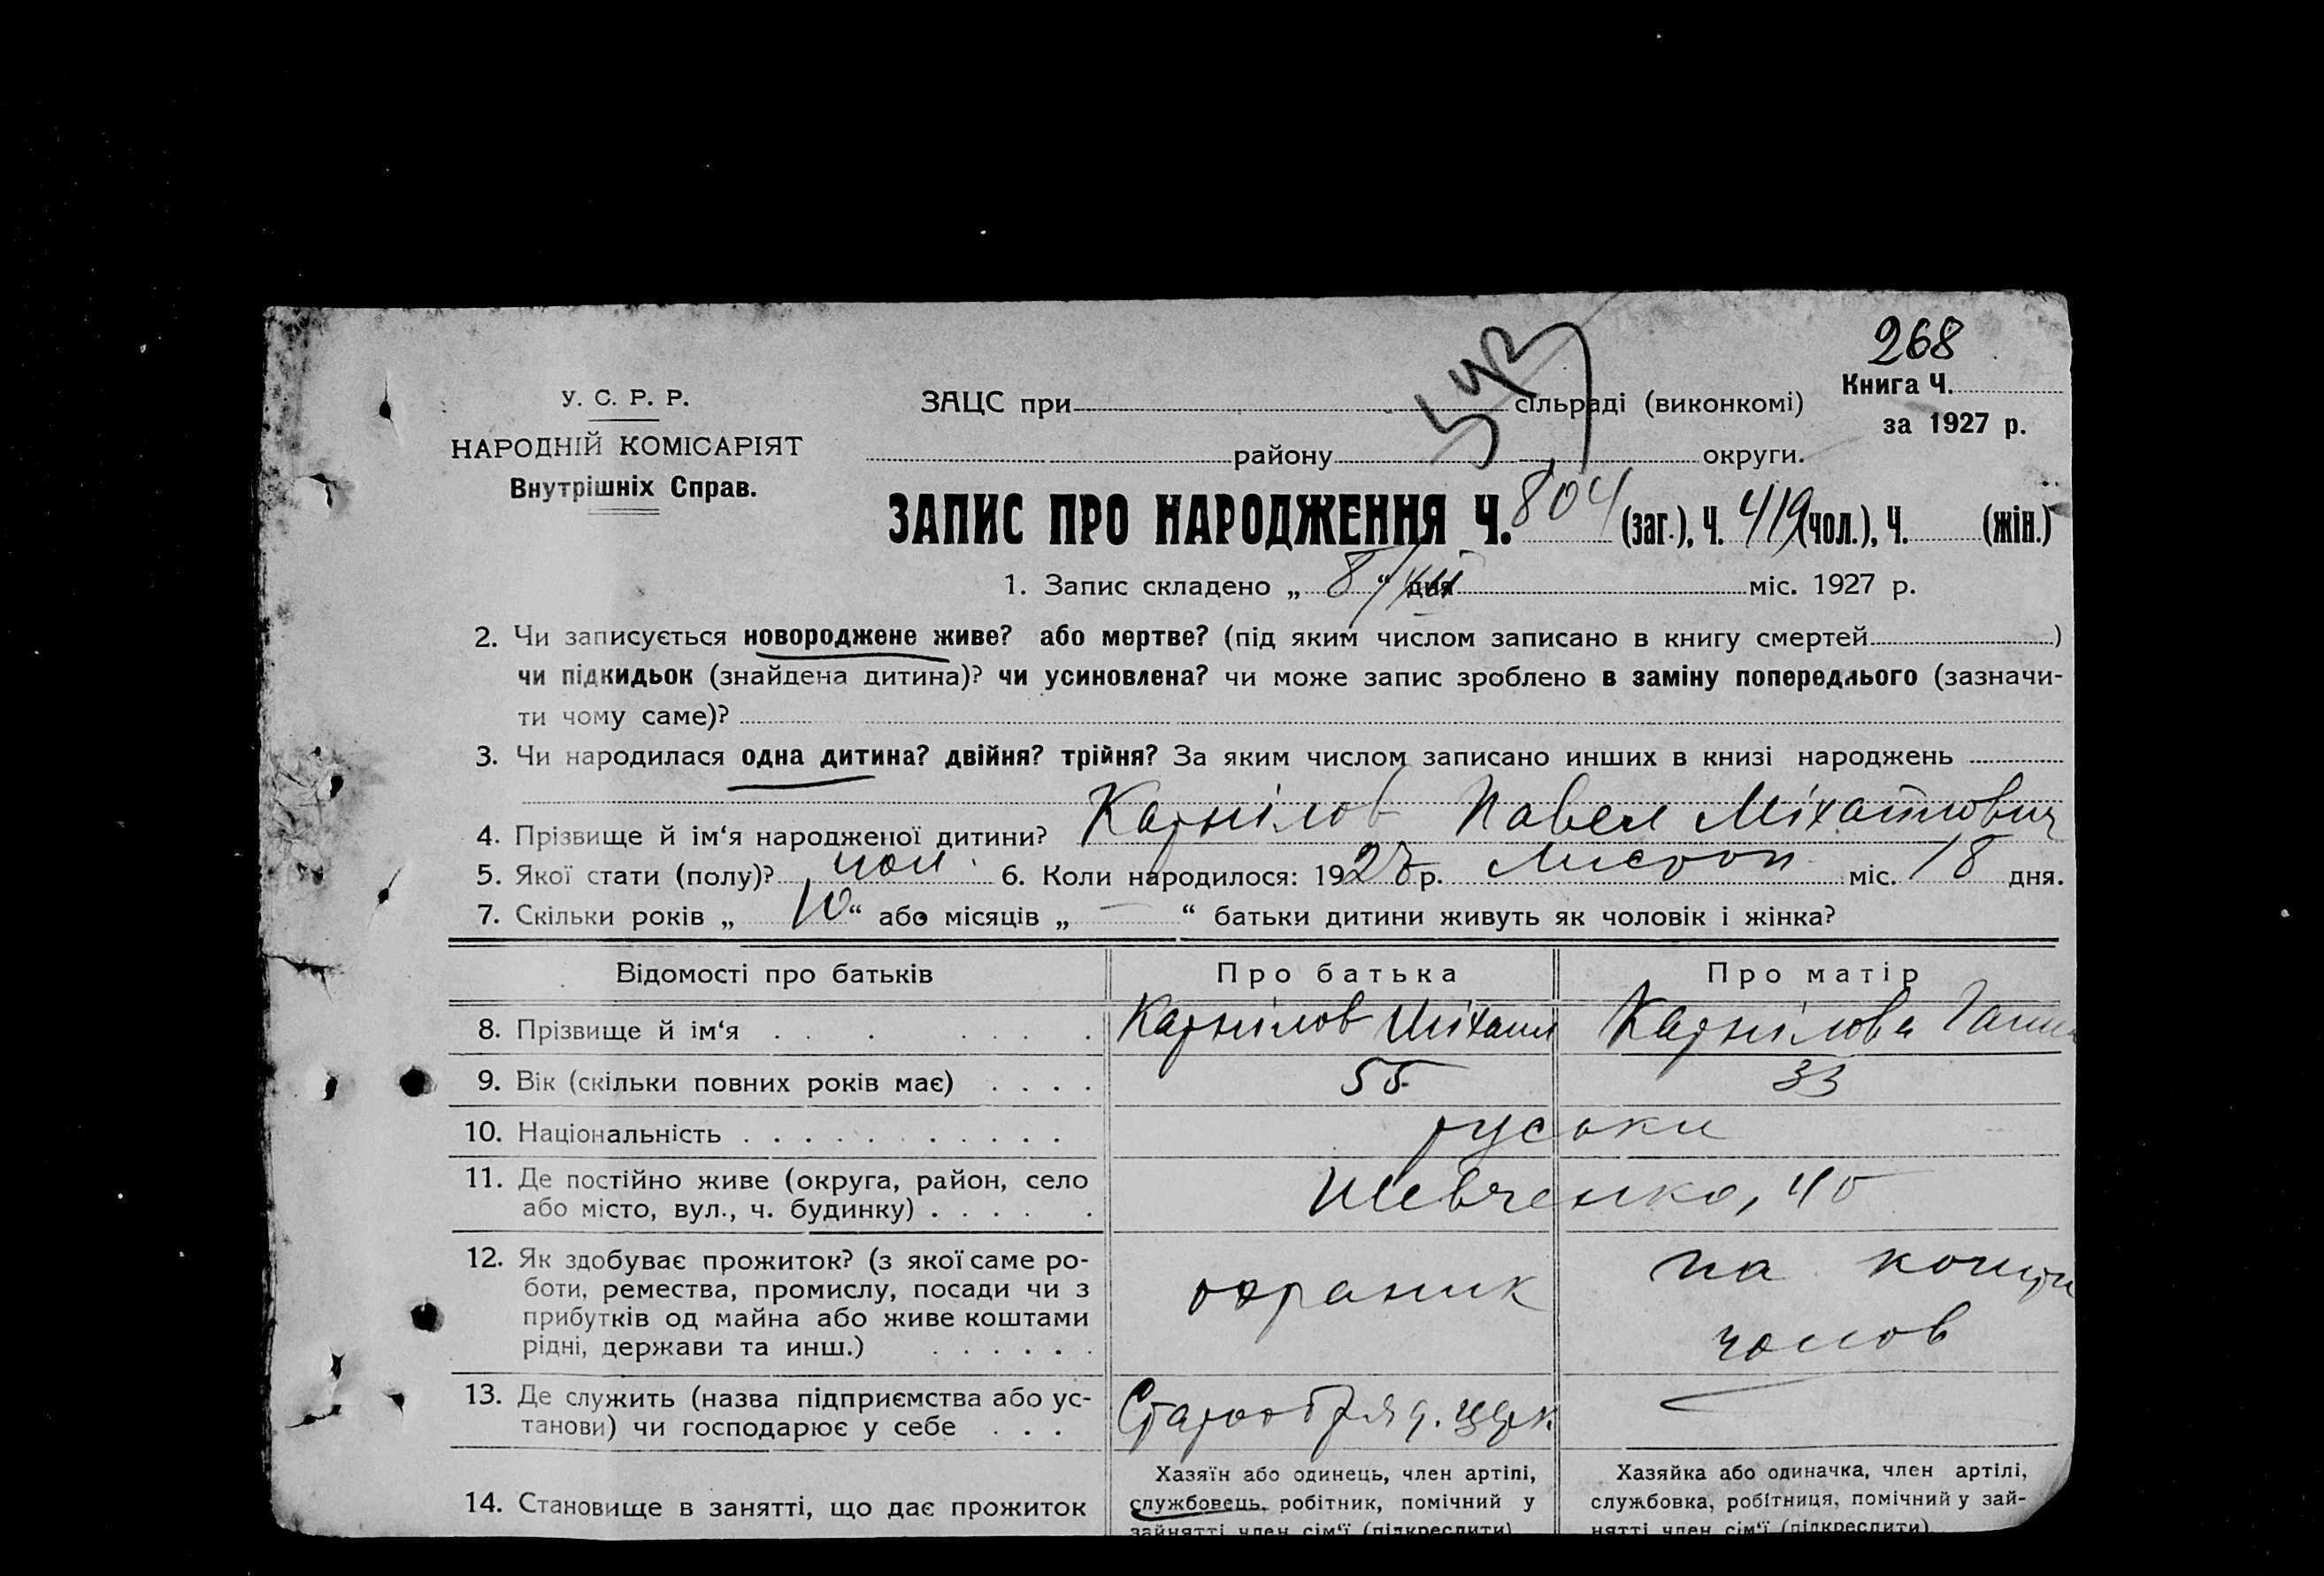 268
У. С. Р. Р.
НАРОДНІЙ КОМІСАРІЯТ
Внутрішніх Справ.
ЗАЦС при сільраді (виконкомі)
району округи.
Книга Ч.
за 1927 р.
ЗАПИС ПРО НАРОДЖЕННЯ Ч. 804 (заг.), Ч. 419 (чол.), Ч. (жін.)
1. Запис складено „ 8/XII “ дня міс. 1927 р.
2. Чи записується новороджене живе? або мертве? (під яким числом записано в книгу смертей )
чи підкидьок (знайдена дитина)? чи усиновлена? чи може запис зроблено в заміну попереднього (зазначи-
ти чому саме)?
3. Чи народилася одна дитина? двійня? трійня? За яким числом записано инших в книзі народжень
4. Прізвище й ім‘я народженої дитини? Карнілов Павел Міхайлович
5. Якої стати (полу)? чол. 6. Коли народилося: 1927 р. Листоп міс. 18 дня.
7. Скільки років „ 10 “ або місяців „ — “ батьки дитини живуть як чоловік і жінка?
Відомості про батьків Про батька Про матір
8. Прізвище й ім‘я Карнілов Міхаил Карнілова Ганна
9. Вік (скільки повних років має) 55 33
10. Національність руськи
11. Де постійно живе (округа, район, село
або місто, вул., ч. будинку) Шевченко, 40
12. Як здобуває прожиток? (з якої саме ро-
боти, ремества, промислу, посади чи з
прибутків од майна або живе коштами
рідні, держави та инш.)
охраник
на кошти
чолов
13. Де служить (назва підприємства або ус-
танови) чи господарює у себе
Старообряд. церк
14. Становище в занятті, що дає прожиток
Хазяїн або одинець, член артілі,
службовець, робітник, помічний у
зайнятті член сім‘ї (підкреслити)
Хазяйка або одиначка, член артілі,
службовка, робітниця, помічний у зай-
нятті член сім‘ї (підкреслити)